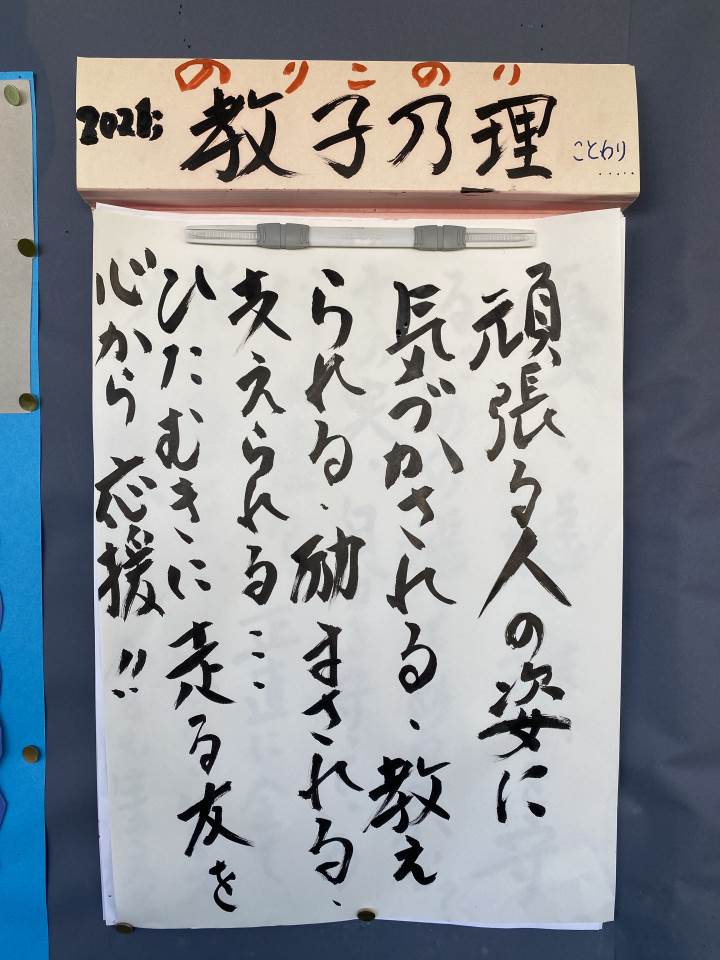 のりこのり
教子乃理
ことわり
頑張る人の姿に
気づかされる、教え
られる、励まされる、
支えられる…
ひたむきに走る友を
心から応援!!